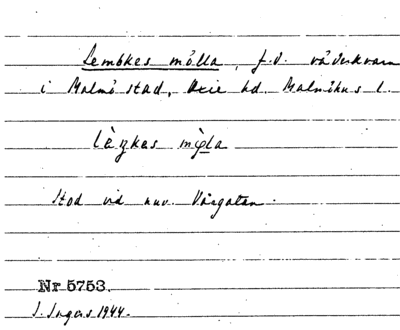 Lembkes mölla, f.d. väderkvarn
i Malmö stad, Oxie hd, Malmöhus l.
Stod vid nuv. Vårgatan.
Nr 5753.
I. Ingers 1944.